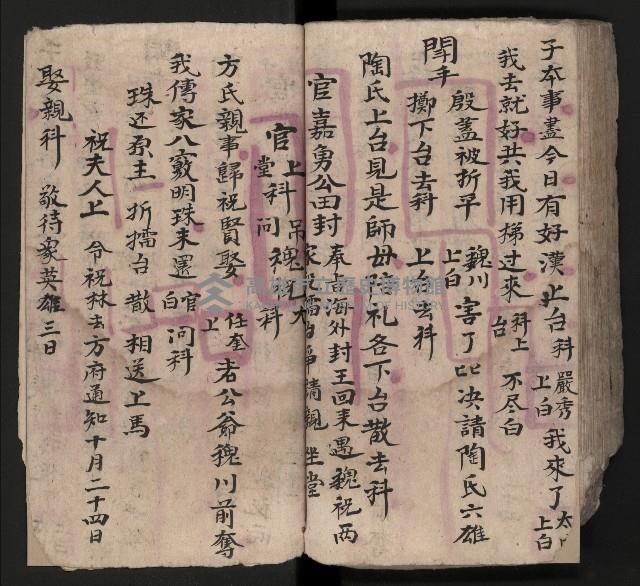 子本事盡今日有好漢上台科 嚴秀上白 我來了 太上白
我去就好共我用梯过來 科上台 不尽白
殷蓋被折早 魏川上白 害了比决請陶氏六雄
閗手 擲下台去科 上台去科
陶氏上台見是師母陪礼各下台散去科
官嘉勇公田封 奉占海外封王回来遇魏祝两
官上堂科問
方氏親事歸祝賢娶 任奎上 老公爺魏川前奪
我傳家八竅明珠未還 官白 问科
珠还原主 折擂台 散 相送上馬
祝夫人上 令祝林去方府通知十月二十四日
娶親科 敬待象英雄三日